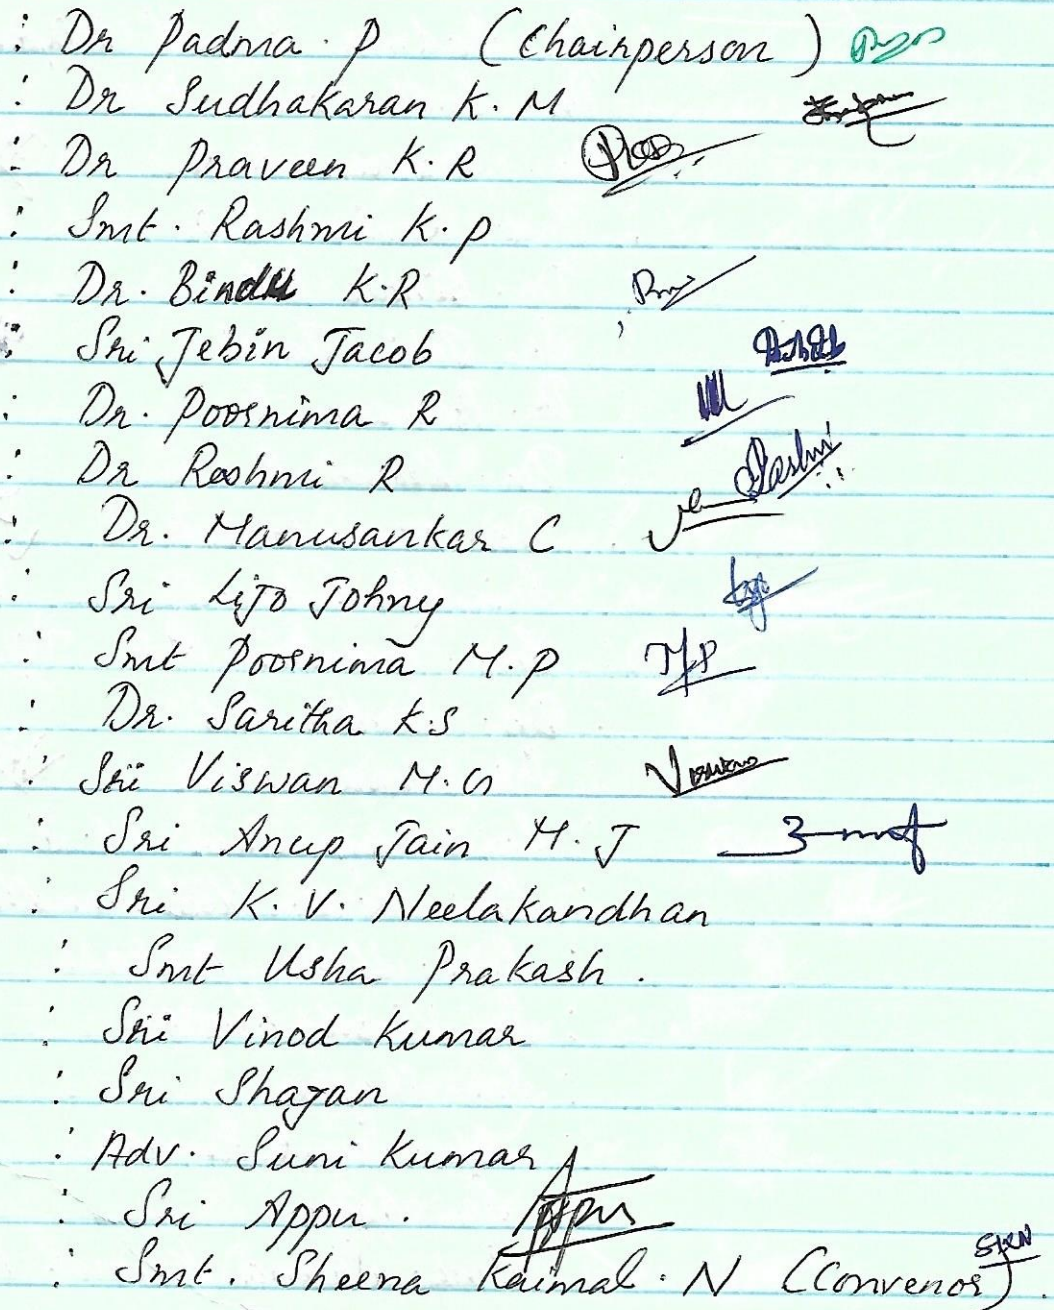 : Dr Padma . P (Chairperson)
: Dr Sudhakaran K. M
: Dr Praveen K. R
: Smt . Rashmi K. P
: Dr. Bindu K.R
: Sri Jebin Jacob
: Dr. Poornima R
: Dr Reshmi R Rashmi
: Dr. Manusankar C
: Sri Lijo Johny
: Smt Poornima M.P MP
: Dr. Saritha K.S
: Sri Viswan M.G Viswan
: Sri Anup Jain M. J
: Sri K. V. Neelakandhan
: Smt Usha Prakash .
: Sri Vinod Kumar
: Sri Shajan
: Adv. Suni Kumar
: Sri Appu . Appu
: Smt. Sheena Kaimal . N (Convenor) .